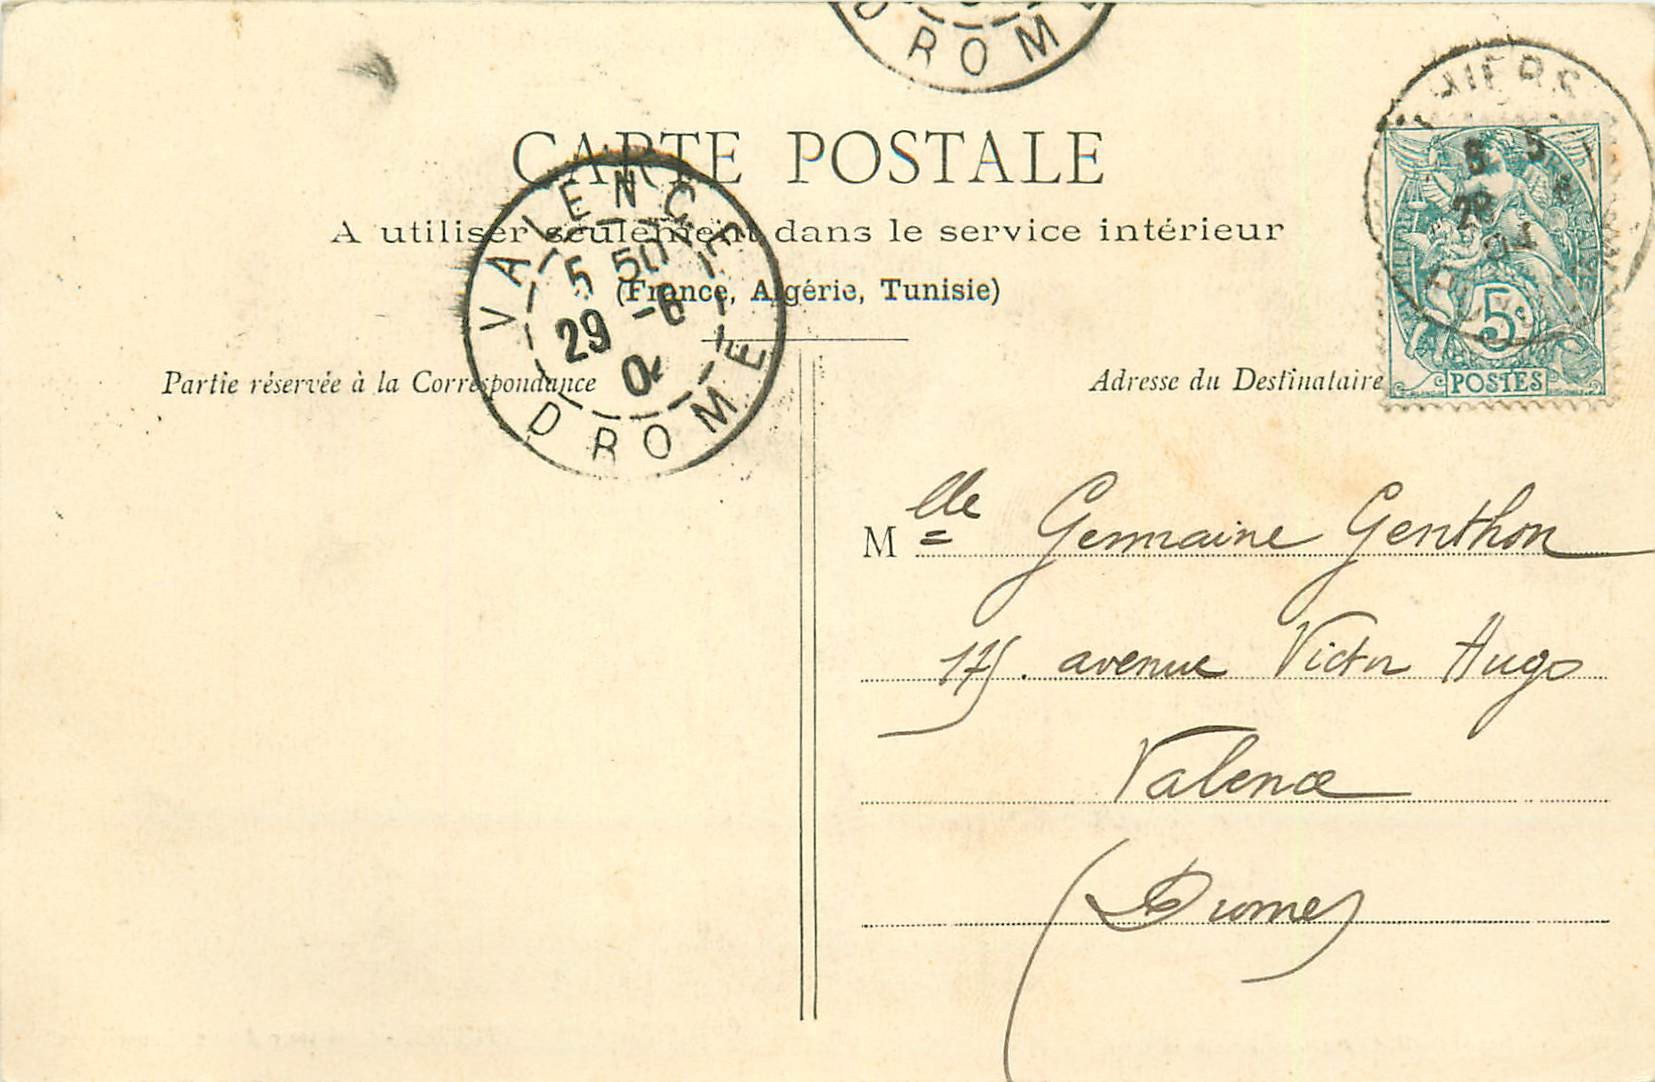 DROME
CARTE POSTALE
A utiliser seulement dans le service intérieur
(France, Algérie, Tunisie)
VALENCE
5 50
29 -6
04
DROME
5 5
28
04
5c
POSTES
Partie réservée à la Correspondance
Adresse du Destinataire
Mlle Germaine Genthon
175. avenue Victor Hugo
Valence
(Drome)